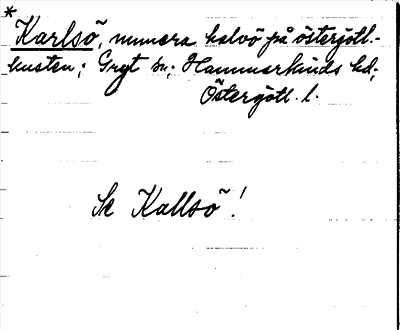 *
Karlsö, numera halvö på östergötl.-
kusten; Gryt sn; Hammarkinds hd;
Östergötl. l.
Se Kallsö!